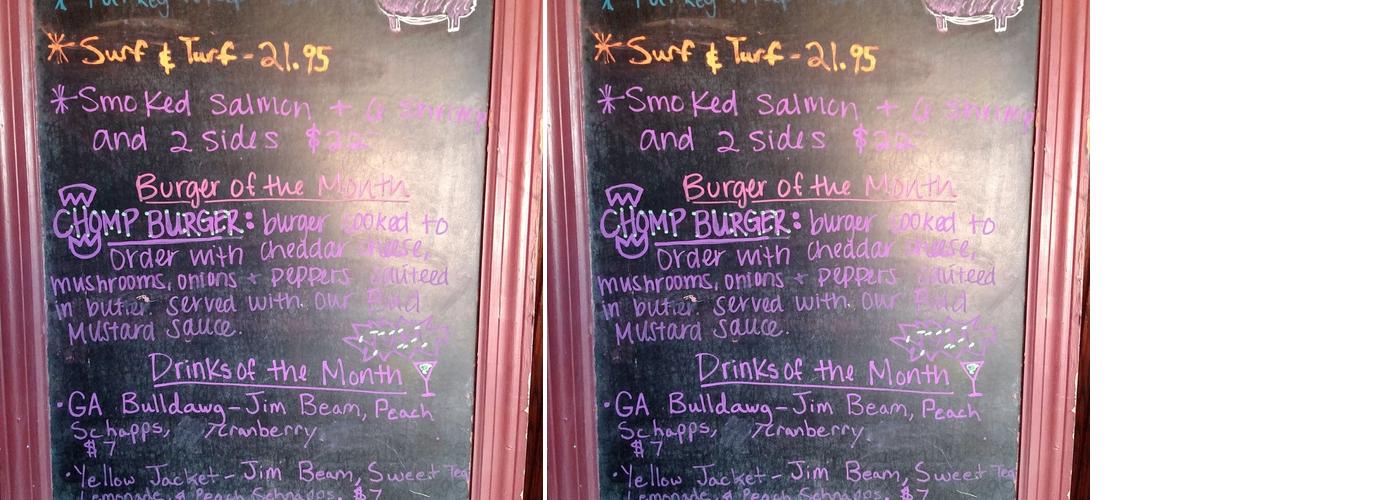 * Turkey
* Surf & Turf - 21.95
* Smoked Salmon + 6 shrimp
and 2 sides $22
Burger of the Month
CHOMP BURGER: burger cooked to
order with cheddar cheese,
mushrooms, onions + peppers sauteed
in butter served with our Bad
Mustard sauce.
Drinks of the Month
• GA Bulldawg - Jim Beam, Peach
Schapps, Cranberry
$7
• Yellow Jacket - Jim Beam, Sweet Tea
Lemonade & Peach Schnapps. $7
* Turkey
* Surf & Turf - 21.95
* Smoked Salmon + 6 shrimp
and 2 sides $22
Burger of the Month
CHOMP BURGER: burger cooked to
order with cheddar cheese,
mushrooms, onions + peppers sauteed
in butter served with our Bad
Mustard sauce.
Drinks of the Month
• GA Bulldawg - Jim Beam, Peach
Schapps, Cranberry
$7
• Yellow Jacket - Jim Beam, Sweet Tea
Lemonade & Peach Schnapps. $7